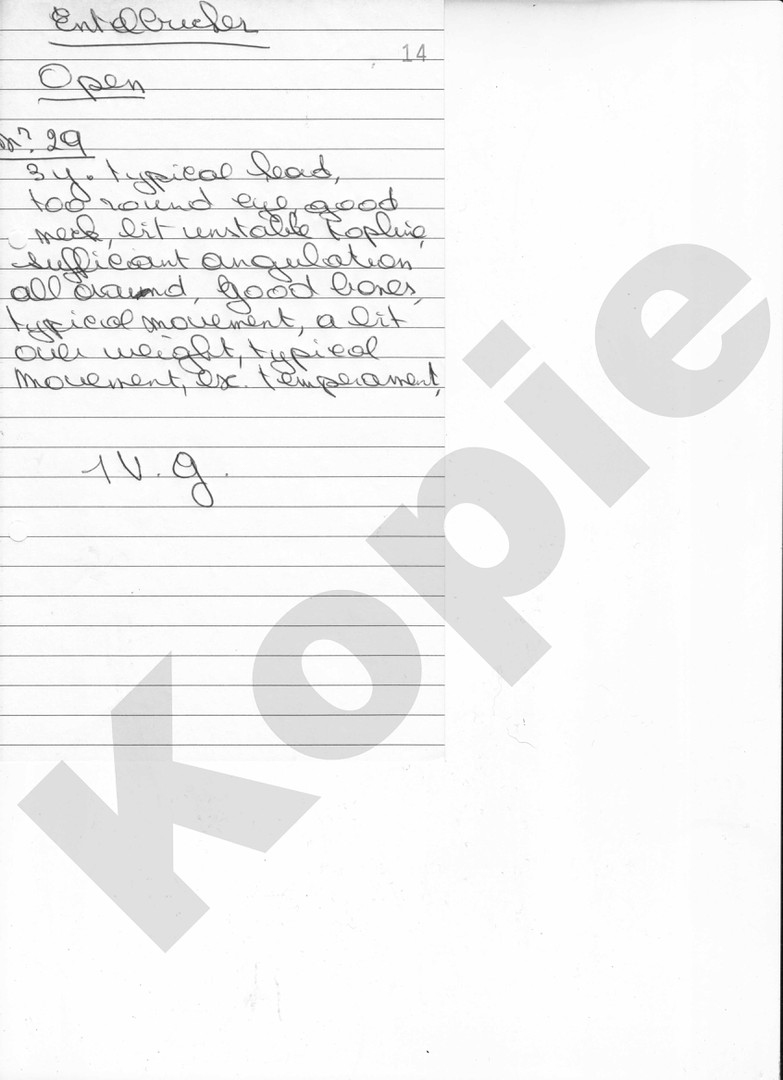 Entelbucher
14
Open
n? 29
3 y. typical head,
too round eye, good
neck, bit unstable topline,
sufficiant angulation
all around, good bones,
typical movement, a bit
over weight, typical
movement, ex. temperament,
1 V. g.
Kopie